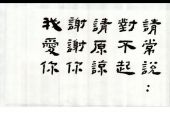 請常說：
對不起
請原諒
謝謝你
我愛你